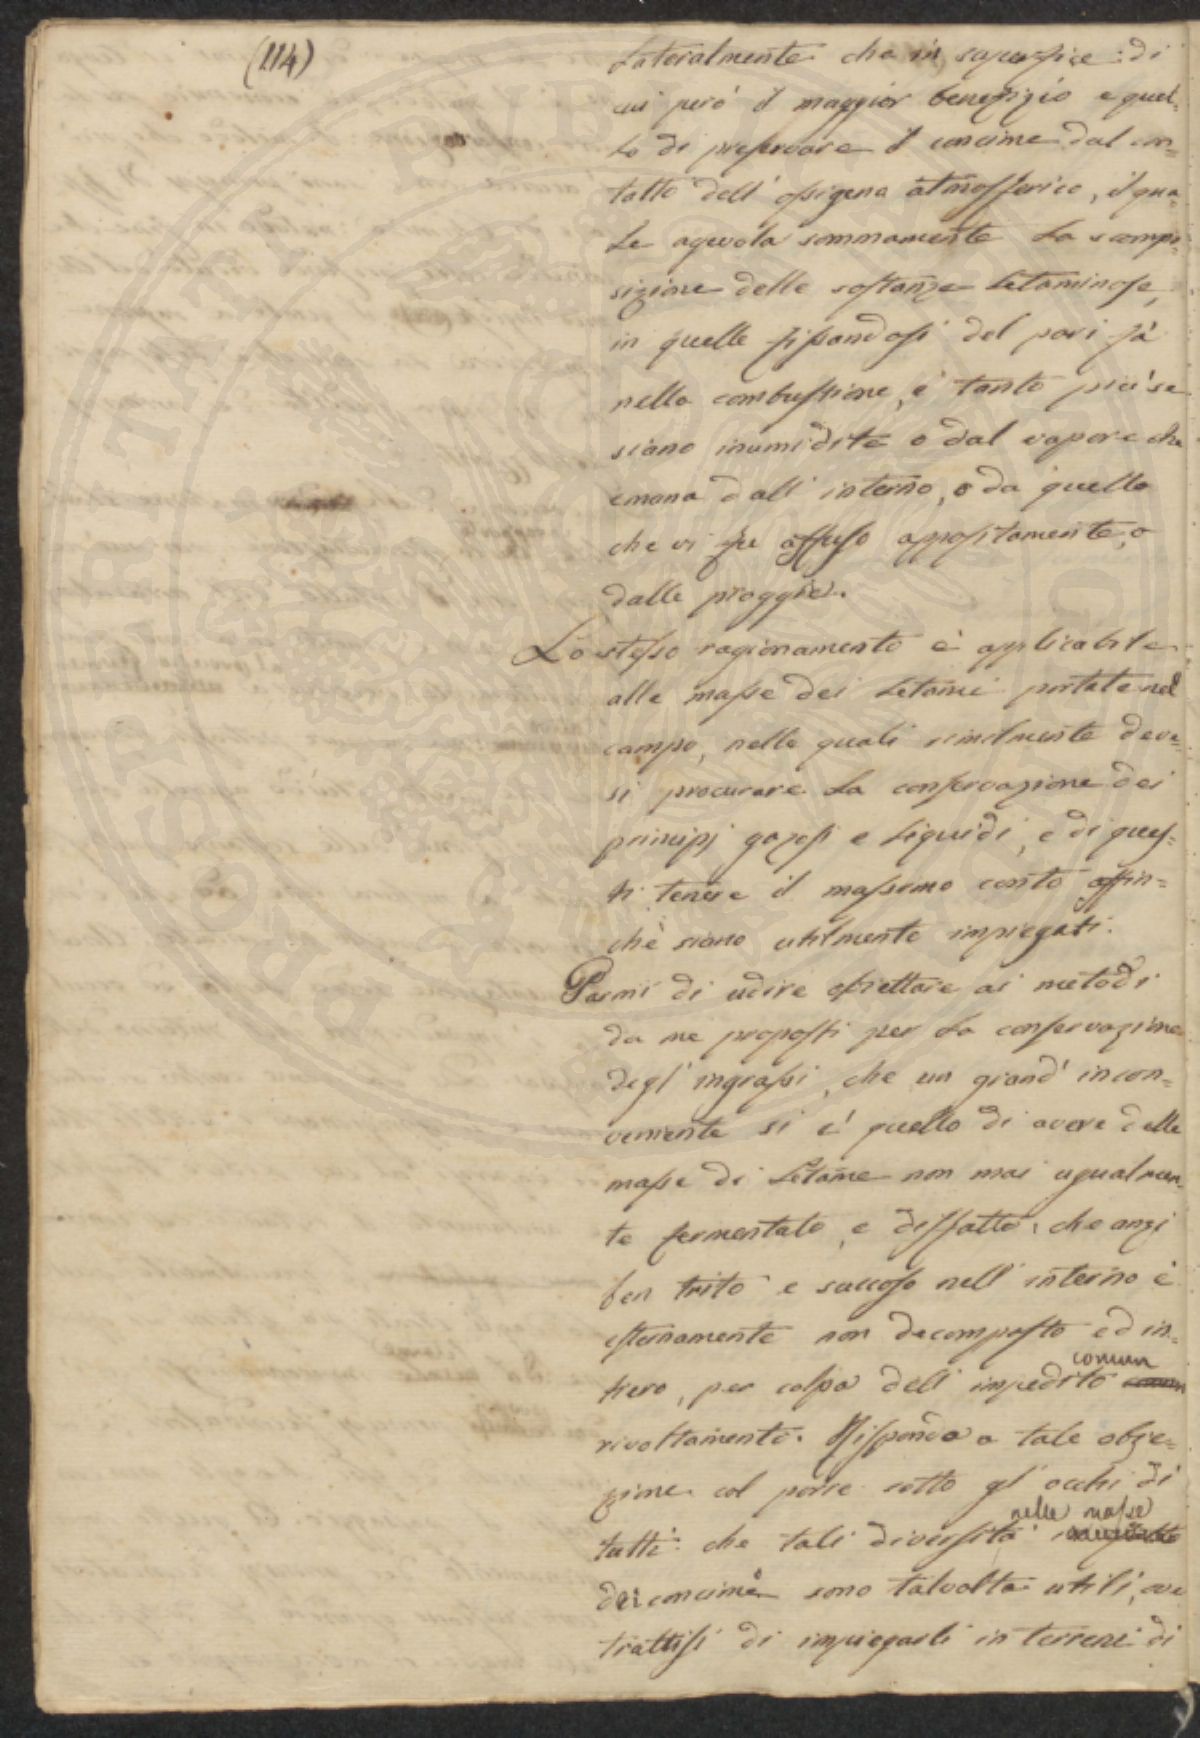 (114)
Lateralmente che in superficie: di
cui però il maggior benefizio e quel-
lo di preservare il concime dal con-
tatto dell' ossigena atmosferico, il qua-
le agevola sommamente la scompo-
sizione delle sostanze letaminose,
in quelle fissandosi del pari fà
nella combustione, e tanto più se
siano inumidite o dal vapore che
emana dall' interno, o da quello
che vi fu affuso appositamente, o
dalle pioggie.
Lo stesso ragionamento è applicabile
alle masse dei Letami portate nel
campo, nelle quali similmente deve-
si procurare la conservazione dei
principj gazosi e liquidi, e di ques-
ti tenere il massimo conto affin-
chè siano utilmente impiegati.
Parmi di udire obiettare ai metodi
da me proposti per la conservazione
degl' ingrassi, che un grand' incon-
veniente si è quello di avere delle
masse di Letame non mai ugualmen-
te fermentato, e disfatto: che anzi
ben trito e succoso nell' interno è
esternamente non decomposto ed in-
tiero, per colpa dell' impedito
comun
rivoltamento. Rispondo a tale obje-
zione col porre sotto gl' occhi di
tutti: che tali diversità
nelle masse
dei concimi sono talvolta utili, ove
trattisi di impiegarli in terreni di